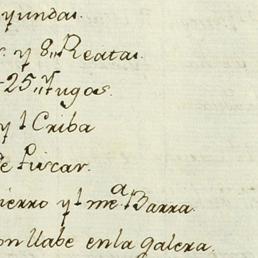 yundas.
y 8,, Reatas
25,, Yugos.
y 1 Criba
de Piscar.
ierro y 1 mª Barra
on llabe en la galera.